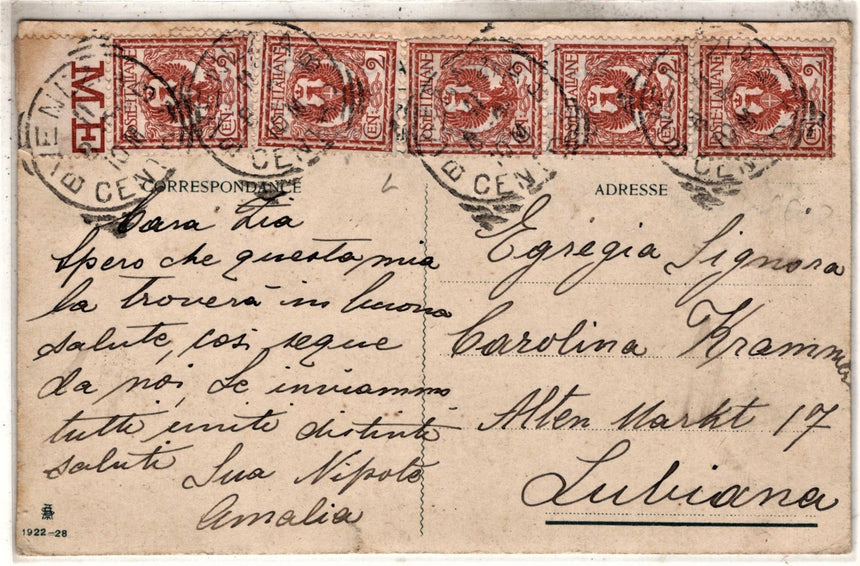 ME
POSTE ITALIANE CENT. 2
POSTE ITALIANE CENT. 2
POSTE ITALIANE CENT. 2
POSTE ITALIANE CENT. 2
POSTE ITALIANE CENT. 2
CORRESPONDANCE
Cara Zia
Spero che questa mia
la troverà in buona
salute, cosi segue
da noi, Le inviammo
tutti uniti distinti
saluti Sua Nipote
Amalia
1922-28
ADRESSE
Egregia Signora
Carolina Krammer
Alten Markt 17
Lubiana